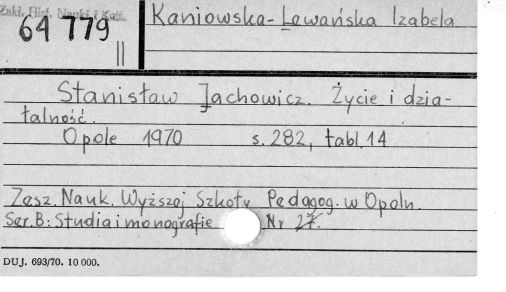 Zakł. Hist. Nauki i Kult.
64 779
II
Kaniowska-Lewańska Izabela
Stanisław Jachowicz. Życie i dzia-
łalność.
Opole 1970 s. 282, tabl. 14
Zesz. Nauk. Wyższej Szkoły Pedagog. w Opolu.
Ser. B: Studia i monografie Nr 27.
DUJ. 693/70. 10 000.